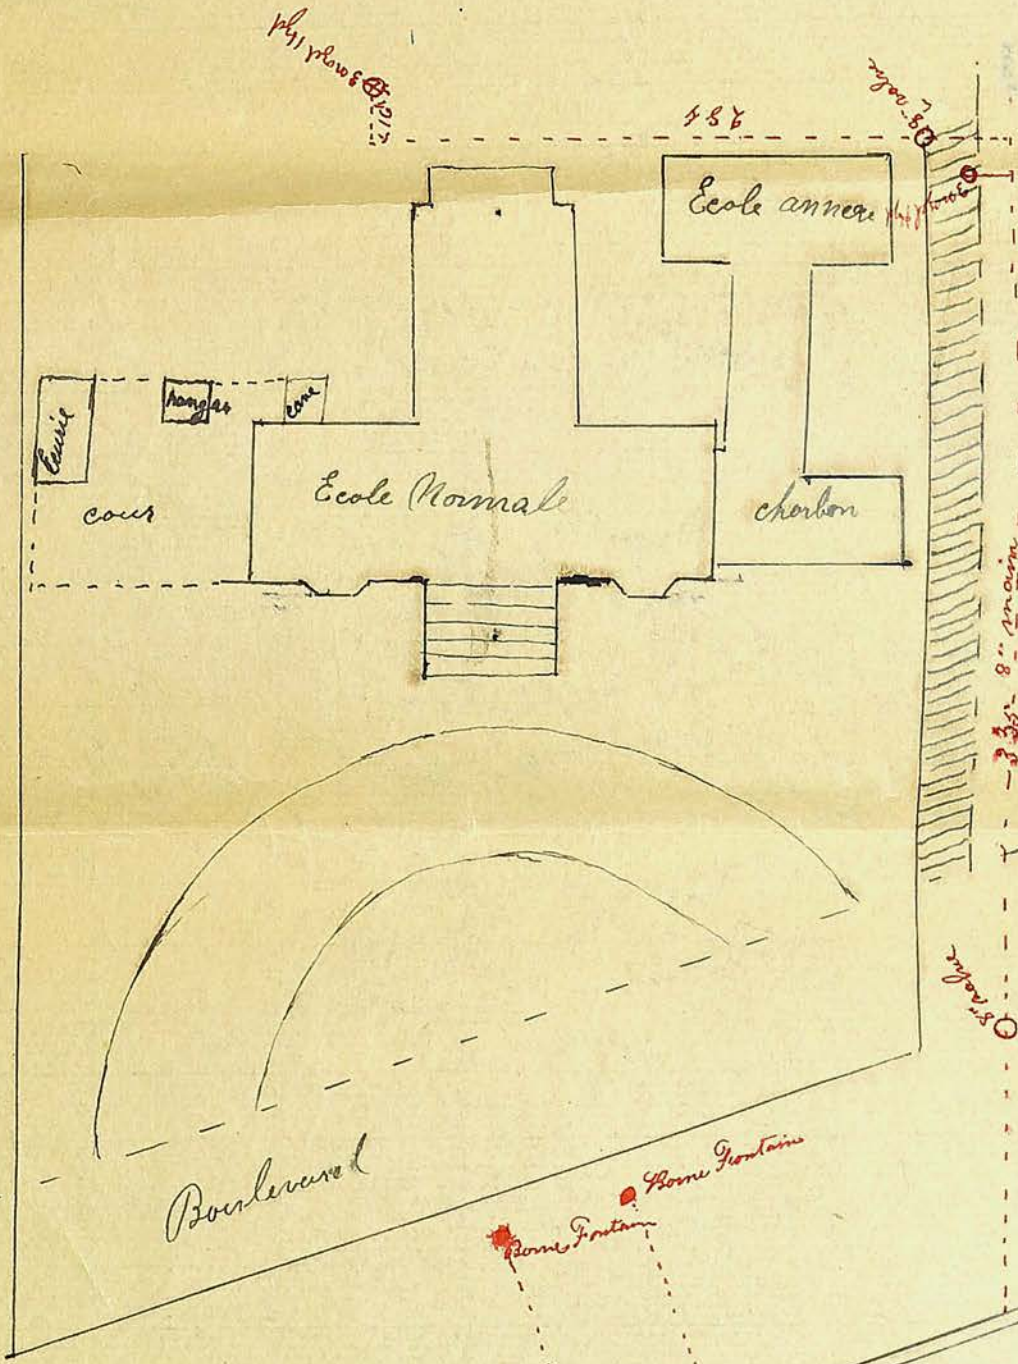 284
8" valve
Ecole annexe
Ecurie
hangar
cave
cour
Ecole Normale
charbon
8" main
8" valve
Boulevard
Borne Fontain
Borne Fontain